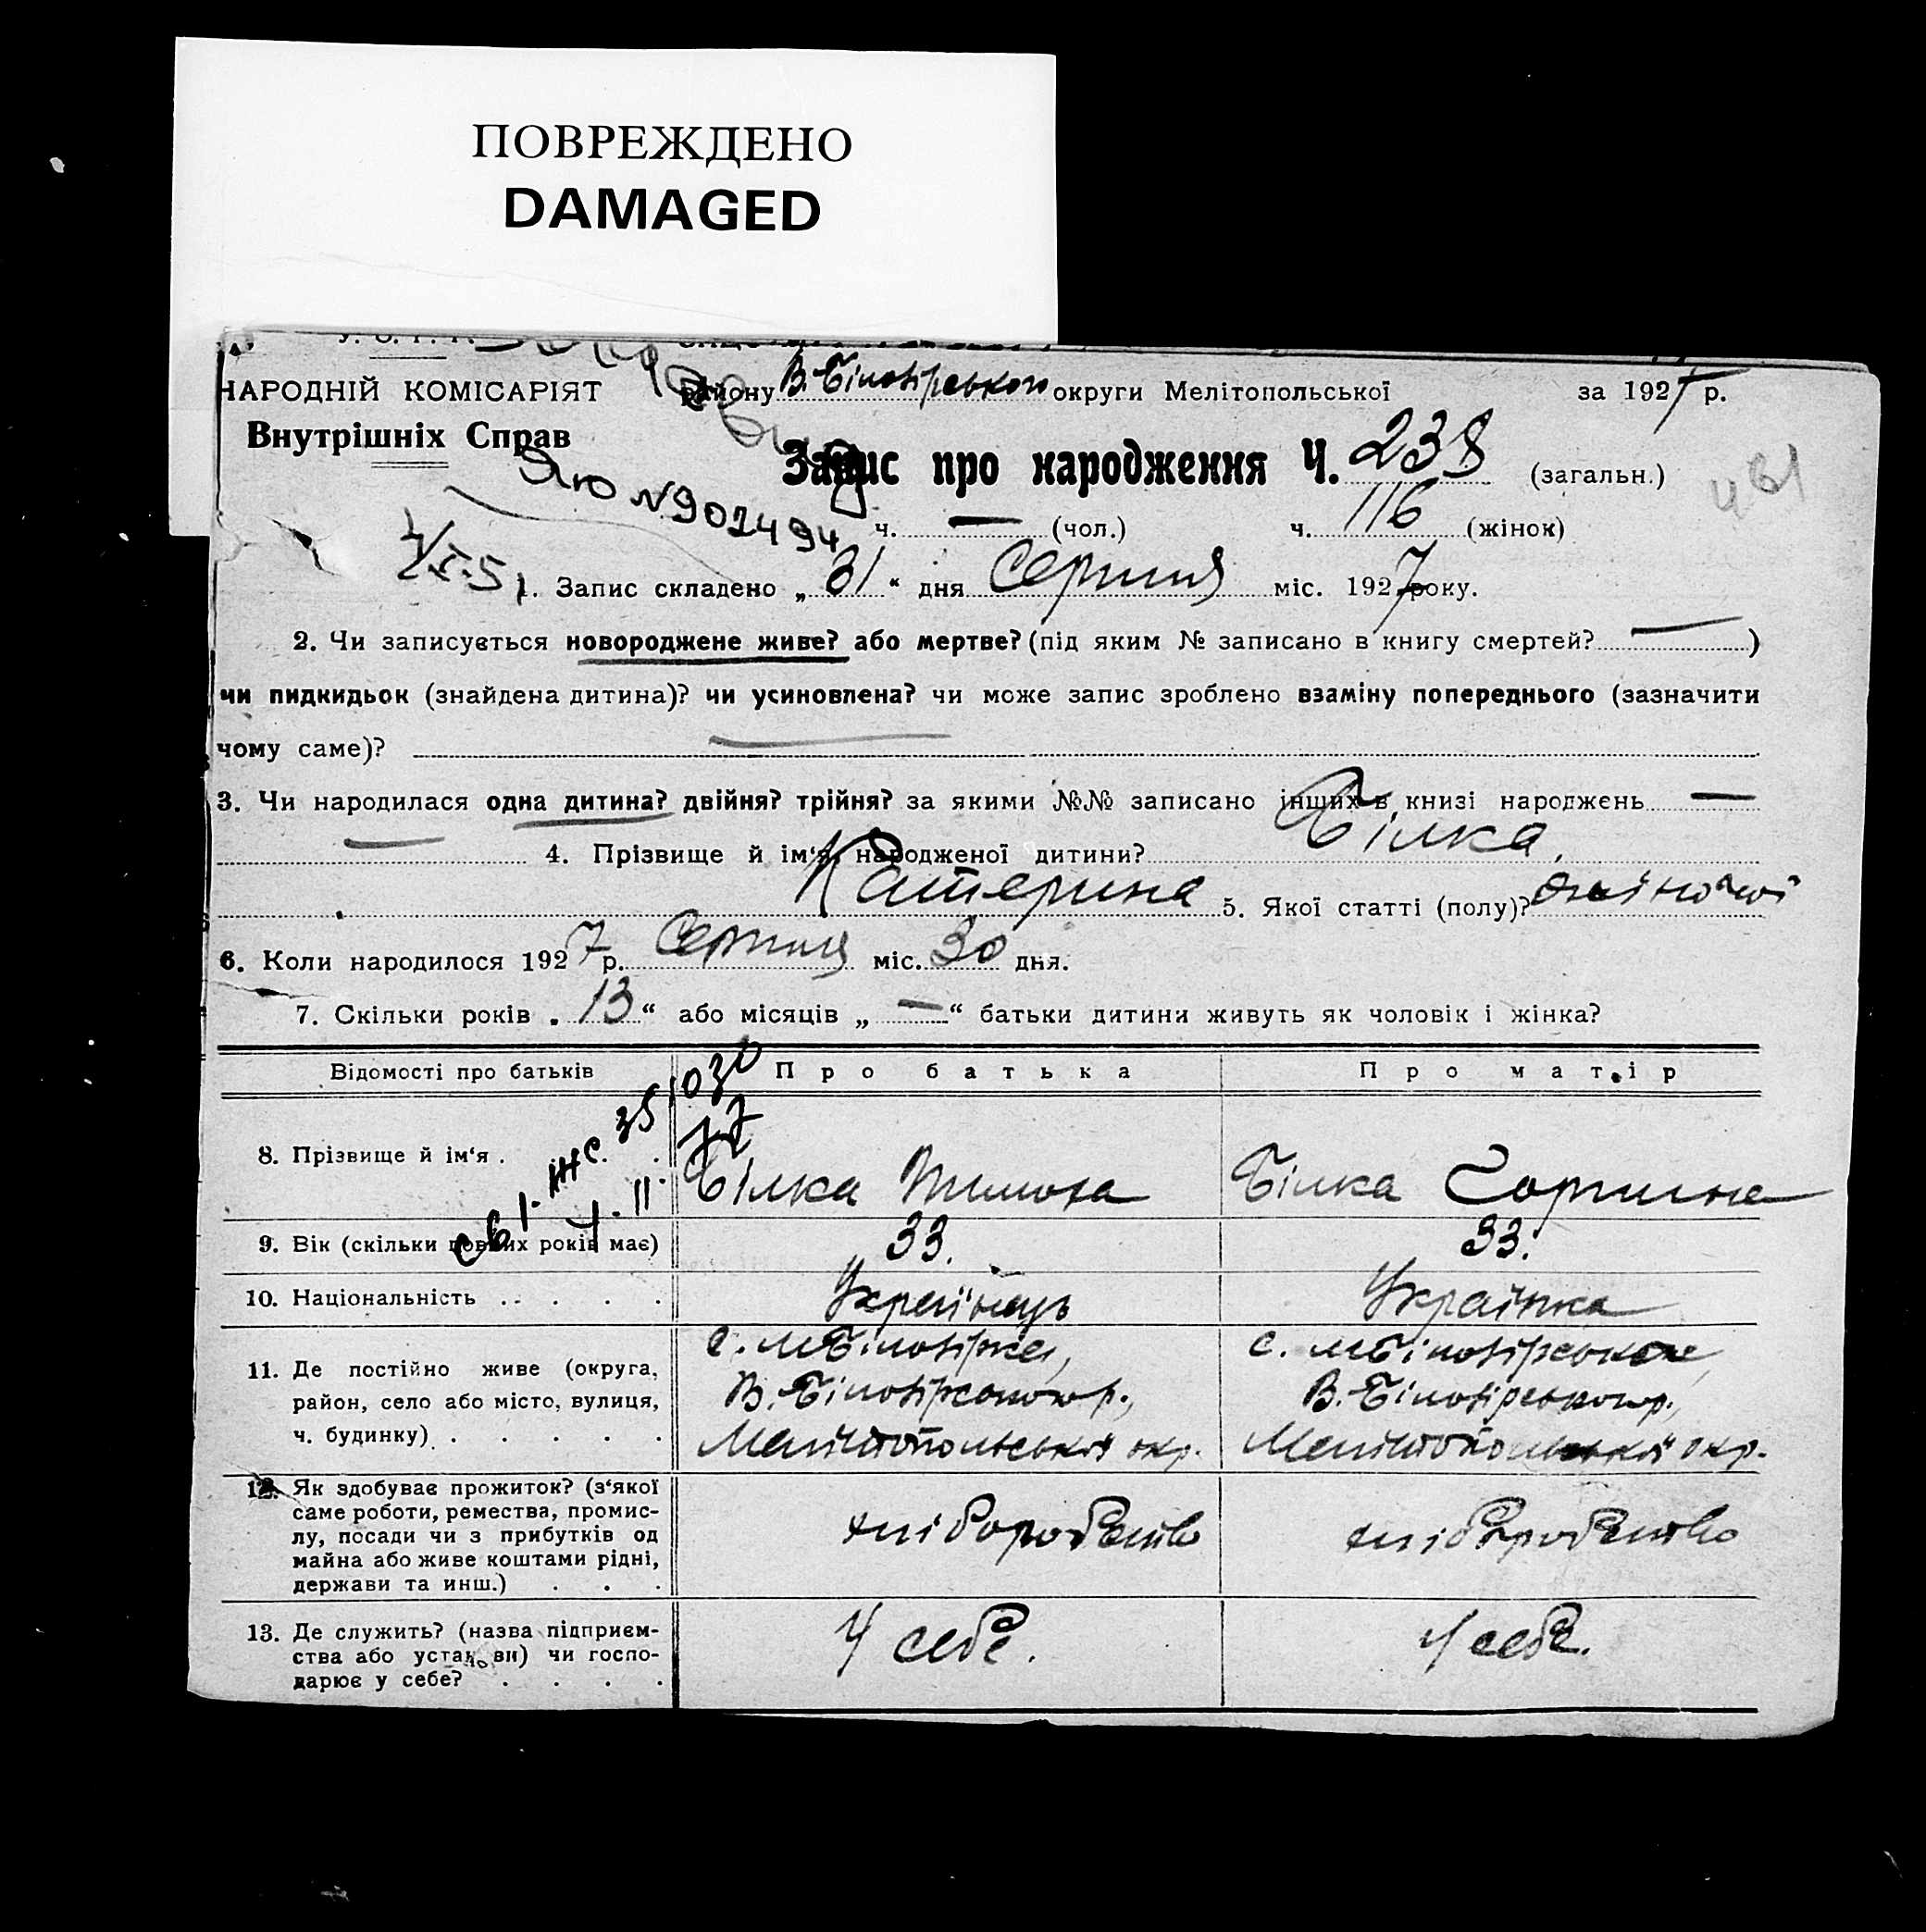 ПОВРЕЖДЕНО
DAMAGED
НАРОДНІЙ КОМІСАРІЯТ
Внутрішніх Справ
району В. Білозірського округи Мелітопольської за 1927 р.
Запис про народження Ч. 238 (загальн.)
ЯЮ № 902494
ч. — (чол.) ч. 116 (жінок)
1. Запис складено „31“ дня Серпня міс. 1927 року.
2. Чи записується новороджене живе? або мертве? (під яким № записано в книгу смертей? — )
чи пидкидьок (знайдена дитина)? чи усиновлена? чи може запис зроблено взаміну попереднього (зазначити
чому саме)? —
3. Чи народилася одна дитина? двійня? трійня? за якими №№ записано інших в книзі народжень —
— 4. Прізвище й ім'я народженої дитини? Білка
Катерина 5. Якої статті (полу)? жіночої
6. Коли народилося 1927 р. Серпня міс. 30 дня.
7. Скільки років „13“ або місяців „—“ батьки дитини живуть як чоловік і жінка?
Відомості про батьків Про батька Про матір
8. Прізвище й ім'я . Білка Білка
9. Вік (скільки повних років має) 33. 33.
10. Національність . . . . . Українець Українка
11. Де постійно живе (округа,
район, село або місто, вулиця,
ч. будинку) . . . . .
с. М Білозірка,
В. Білозірського р.,
Мелітопольської окр.
с. М Білозірська
В. Білозірського р.,
Мелітопольської окр.
12. Як здобуває прожиток? (з'якої
саме роботи, ремества, промис-
лу, посади чи з прибутків од
майна або живе коштами рідні,
держави та инш.) . . .
хліборобство хліборобство
13. Де служить? (назва підприєм-
ства або установи) чи госпо-
дарює у себе? . . . .
У себе. У себе.